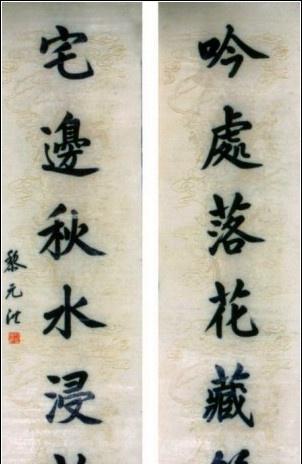 吟處落花藏
宅邊秋水浸
黎元洪